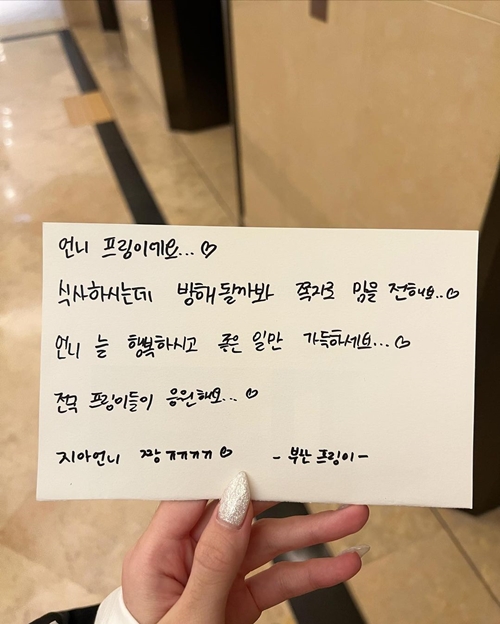 언니 프링이에요...♡
식사하시는데 방해될까봐 쪽지로 맘을 전해요..♡
언니 늘 행복하시고 좋은 일만 가득하세요...♡
전국 프링이들이 응원해요...♡
지아언니 짱 ㅠㅠㅠㅠ♡ - 부산 프링이 -